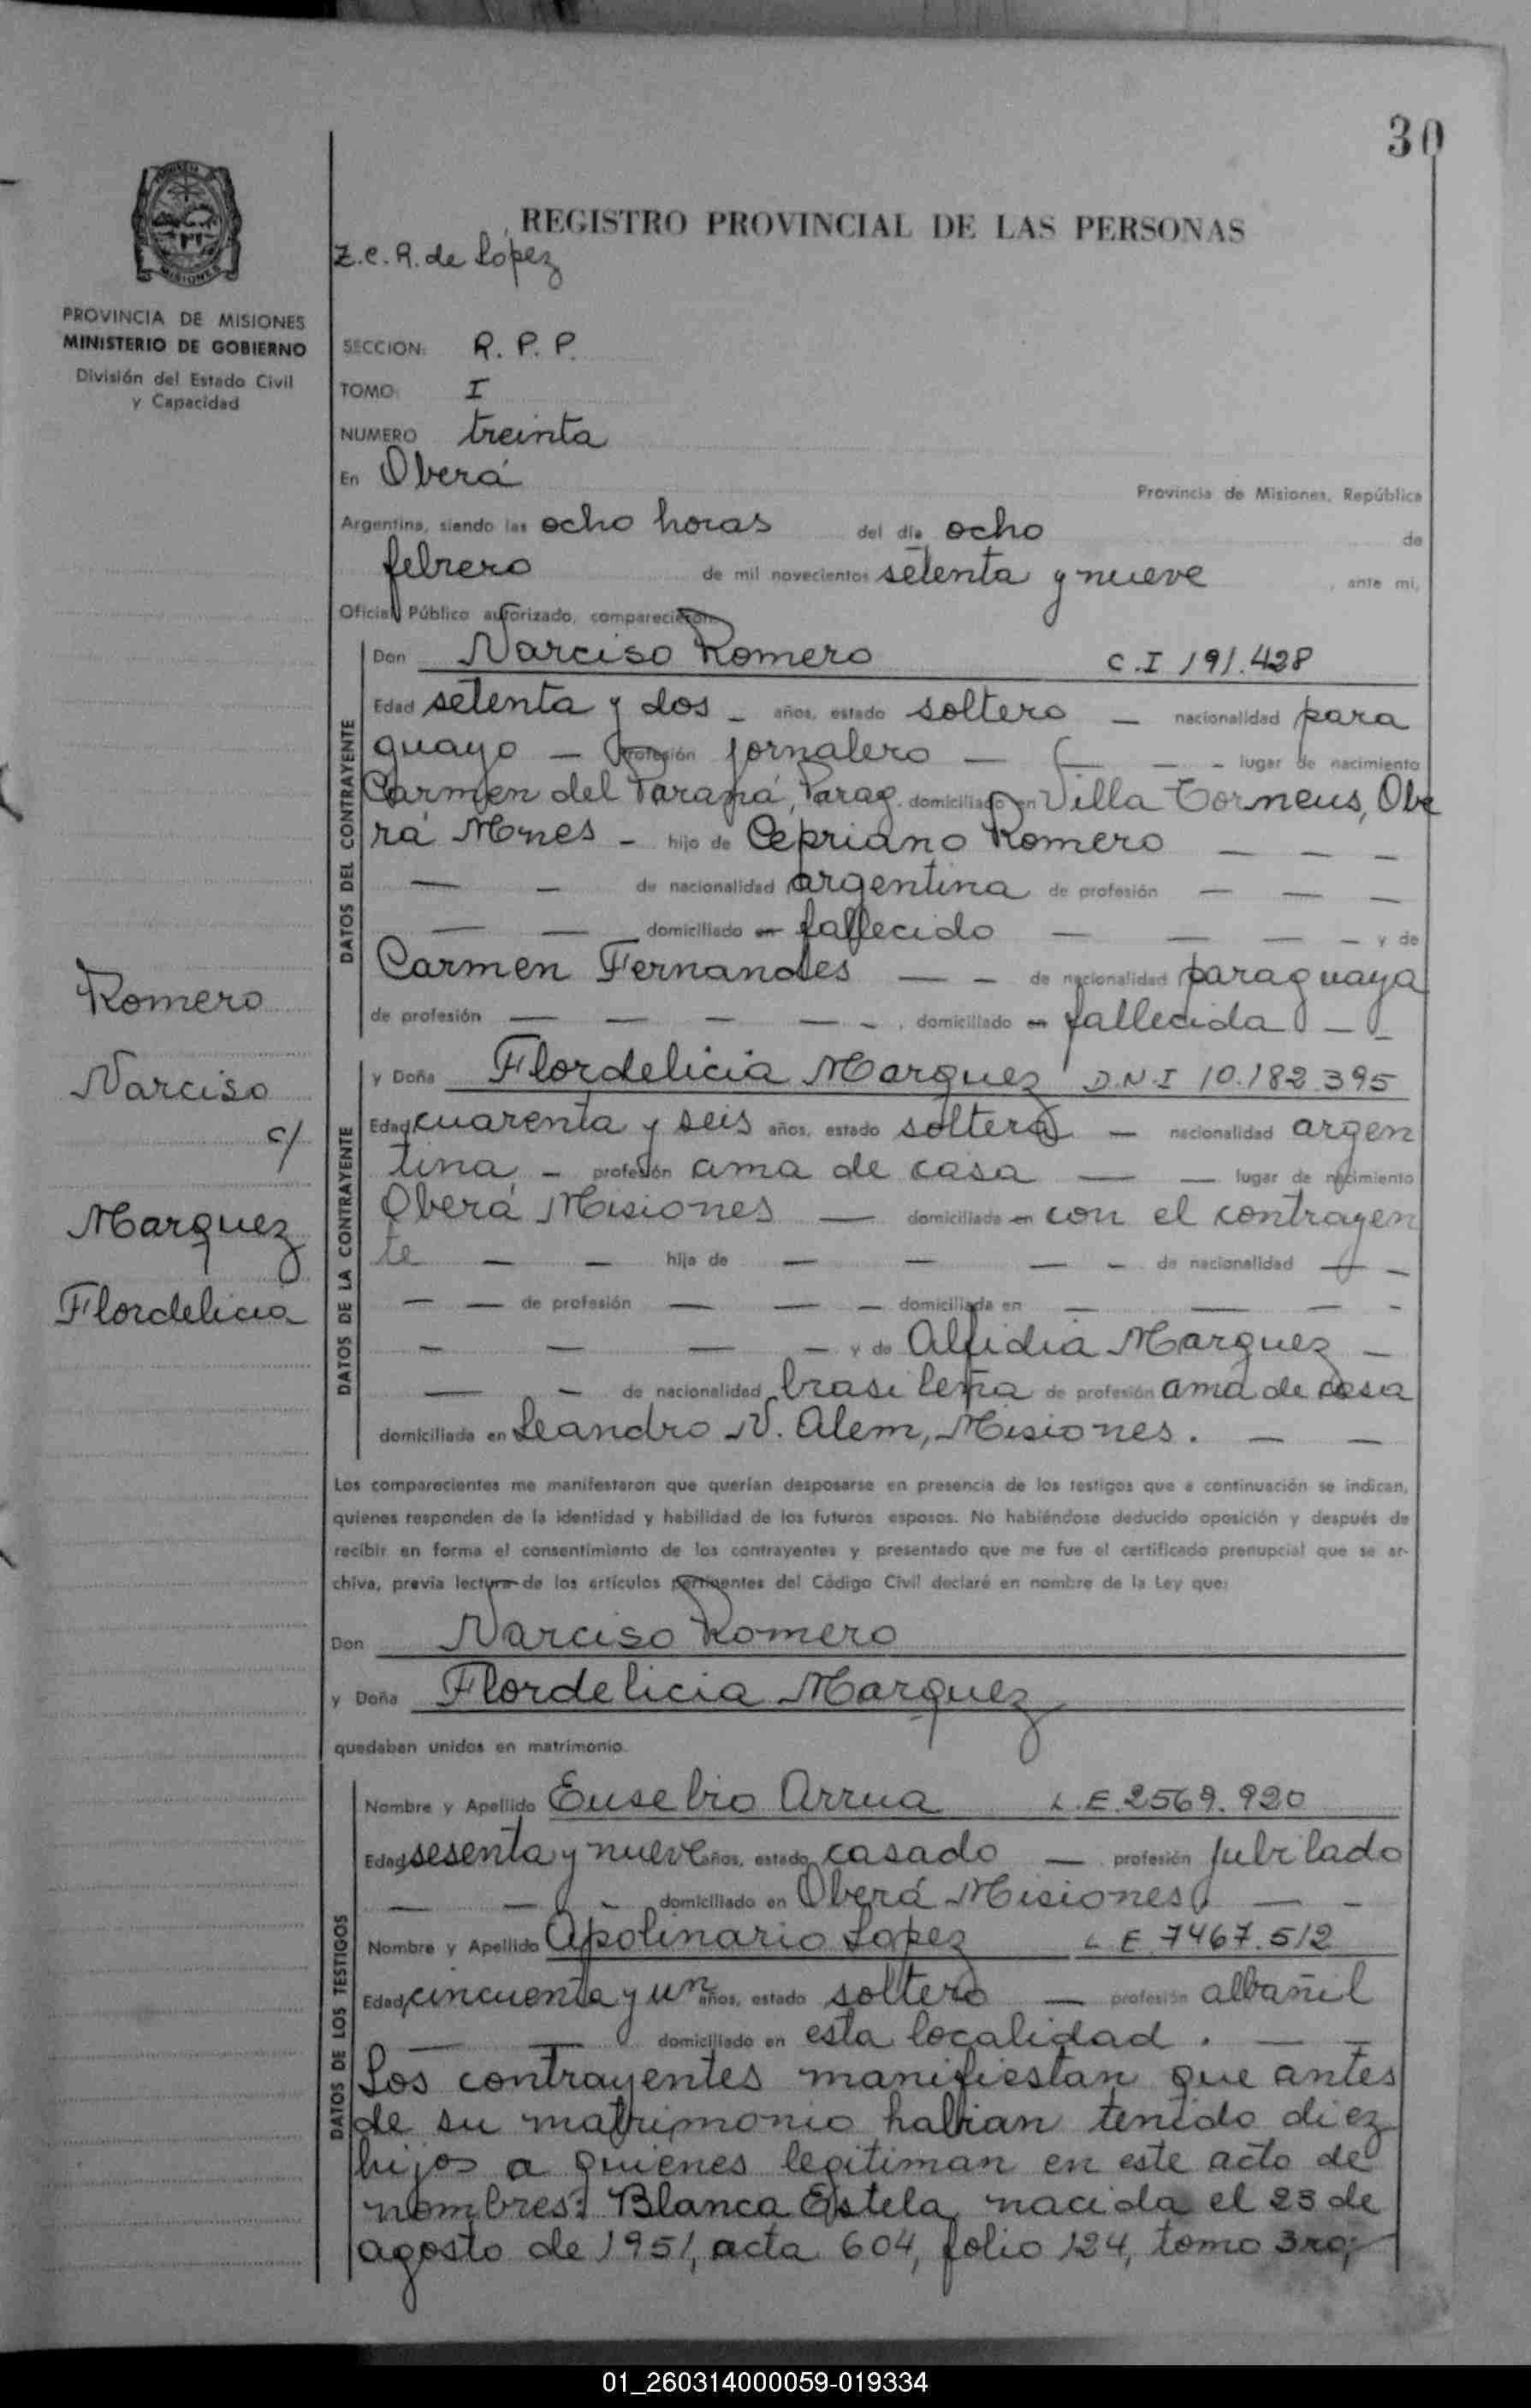 30
REGISTRO PROVINCIAL DE LAS PERSONAS
Z.C.R. de Lopez
MISIONES
PROVINCIA DE MISIONES
MINISTERIO DE GOBIERNO
División del Estado Civil
y Capacidad
SECCION: R. P. P.
TOMO: I
NUMERO treinta
En Oberá
Provincia de Misiones, República
Argentina, siendo las ocho horas del día ocho de
febrero de mil novecientos setenta y nueve, ante mí,
Oficial Público autorizado, comparecieron:
DATOS DEL CONTRAYENTE
Don Narciso Romero C.I 191.428
Edad setenta y dos - años, estado soltero - nacionalidad para
guayo - profesión jornalero - - - - lugar de nacimiento
Carmen del Paraná, Parag. domiciliado en Villa Torneus, Obe
rá Mnes - hijo de Cepriano Romero - - -
- - de nacionalidad argentina de profesión - - -
- - domiciliado en fallecido - - - - y de
Carmen Fernandes - - de nacionalidad paraguaya
de profesión - - - - -, domiciliado en fallecida - -
DATOS DE LA CONTRAYENTE
y Doña Flordelicia Marquez D.N.I 10.182.395
Edad cuarenta y seis años, estado soltera - nacionalidad argen
tina - profesión ama de casa - - lugar de nacimiento
Oberá Misiones - domiciliada en con el contrayen
te - - hija de - - - - de nacionalidad - -
- - de profesión - - - domiciliada en - - - -
- - - - y de Alfidia Marquez -
- - de nacionalidad brasileña de profesión ama de casa
domiciliada en Leandro N. Alem, Misiones. - -
Romero
Narciso
c/
Marquez
Flordelicia
Los comparecientes me manifestaron que querían desposarse en presencia de los testigos que a continuación se indican,
quienes responden de la identidad y habilidad de los futuros esposos. No habiéndose deducido oposición y después de
recibir en forma el consentimiento de los contrayentes y presentado que me fue el certificado prenupcial que se ar-
chiva, previa lectura de los artículos pertinentes del Código Civil declaré en nombre de la Ley que:
Don Narciso Romero
y Doña Flordelicia Marquez
quedaban unidos en matrimonio.
DATOS DE LOS TESTIGOS
Nombre y Apellido Eusebio Arrua L.E.2569.920
Edad sesenta y nueve años, estado casado - profesión jubilado
- - - domiciliado en Oberá Misiones. - -
Nombre y Apellido Apolinario Lopez L E 7467.512
Edad cincuenta y un años, estado soltero - profesión albañil
- - domiciliado en esta localidad. - -
Los contrayentes manifiestan que antes
de su matrimonio habian tenido diez
hijos a quienes legitiman en este acto de
nombres: Blanca Estela, nacida el 23 de
agosto de 1951, acta 604, folio 124, tomo 3ro;
01_260314000059-019334